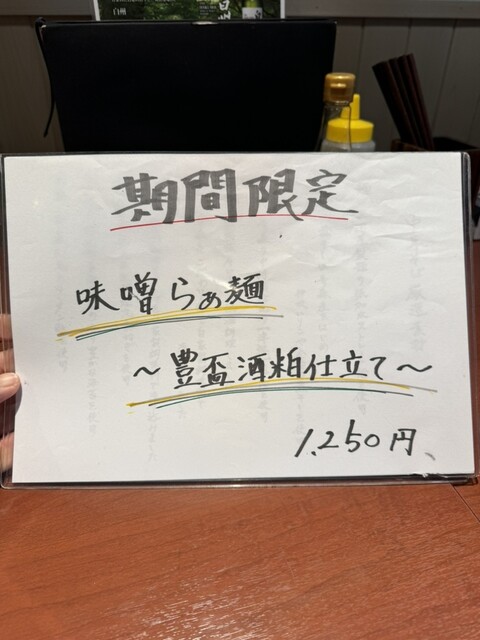 白州
期間限定
味噌らぁ麺
～豊盃酒粕仕立て～
1,250円